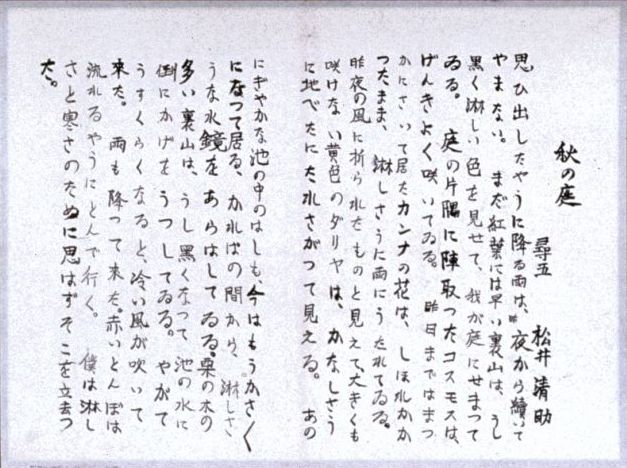 秋の庭
尋五 松井清助
思ひ出したやうに降る雨は、昨夜から續いて
やまない。まだ紅葉には早い裏山は、うし
黒く淋しい色を見せて、我が庭にせまつて
ゐる。庭の片隅に陣取つたコスモスは、
げんきよく咲いてゐる。昨日まではまつ
かにさいて居たカンナの花は、しほれかか
つたまま、淋しさうに雨にうたれてゐる。
昨夜の風に折られたものと見えて、大きくも
咲けない黄色のダリヤは、かなしさう
に地べたにたれさがつて見える。あの
にぎやかな池の中のはしも、今はもうかさく
になつて居る、かれはの間から、淋しさ
うな水鏡をあらはしてゐる。栗の木の
多い裏山は、うし黒くなつて池の水に
倒にかげをうつしてゐる。やがて
うすくらくなると、冷い風が吹いて
來た。雨も降つて来た。赤いとんぼは
流れるやうにとんで行く。僕は淋し
さと寒さのために思はずそこを立去つ
た。